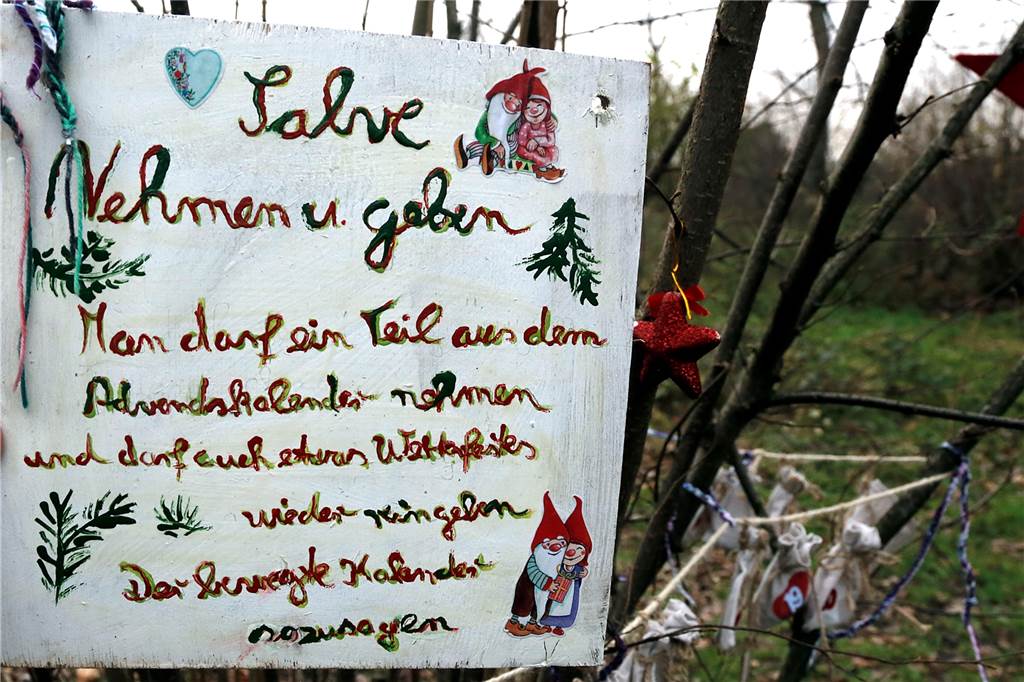 Salve
Nehmen u. geben
Man darf ein Teil aus dem
Advendskalender nehmen
und darf auch etwas Wetterfestes
wieder reingeben
Der bewegte Kalender
sozusagen